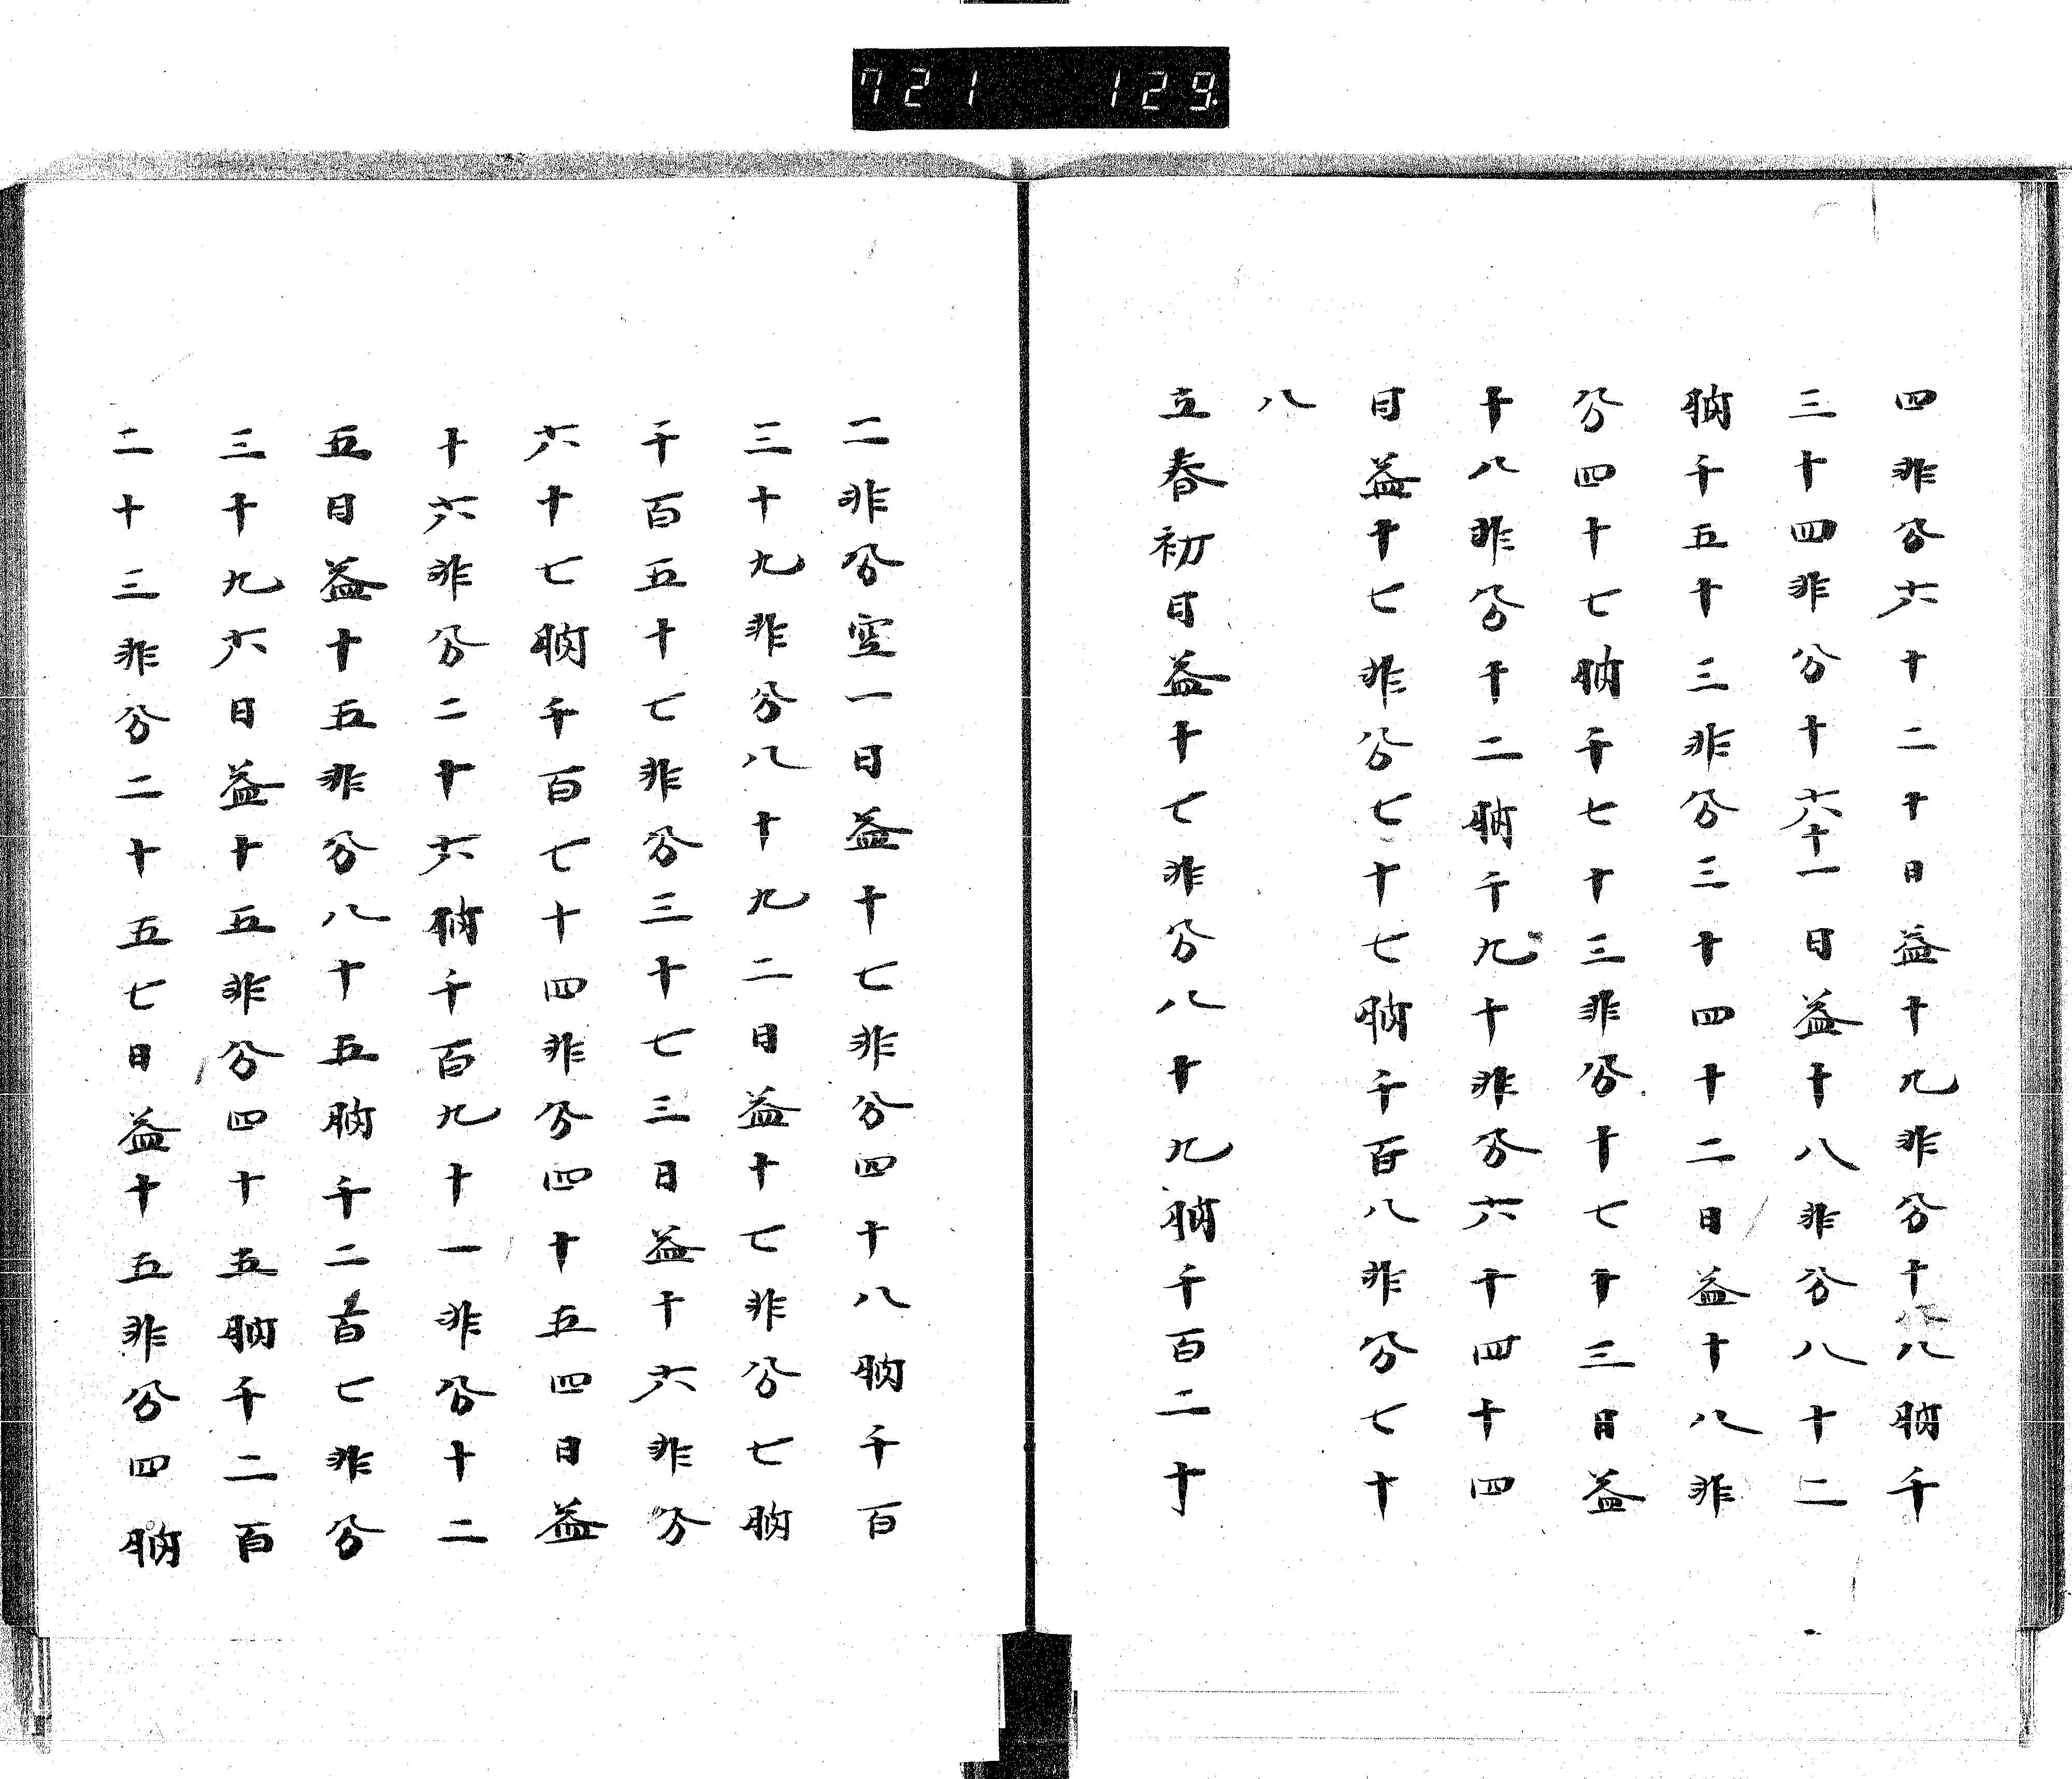 721 129.
四非分六十二十日益十九非分十八朒千
三十四非分十六十一日益十八非分八十二
朒千五十三非分三十四十二日益十八非
分四十七朒千七十三非分十七十三日益
十八非分十二朒千九十非分六十四十四
日益十七非分七十七朒千百八非分七十
八
立春初日益十七非分八十九朒千百二十
二非分空一日益十七非分四十八朒千百
三十九非分八十九二日益十七非分七朒
千百五十七非分三十七三日益十六非分
六十七朒千百七十四非分四十五四日益
十六非分二十六朒千百九十一非分十二
五日益十五非分八十五朒千二百七非分
三十九六日益十五非分四十五朒千二百
二十三非分二十五七日益十五非分四朒